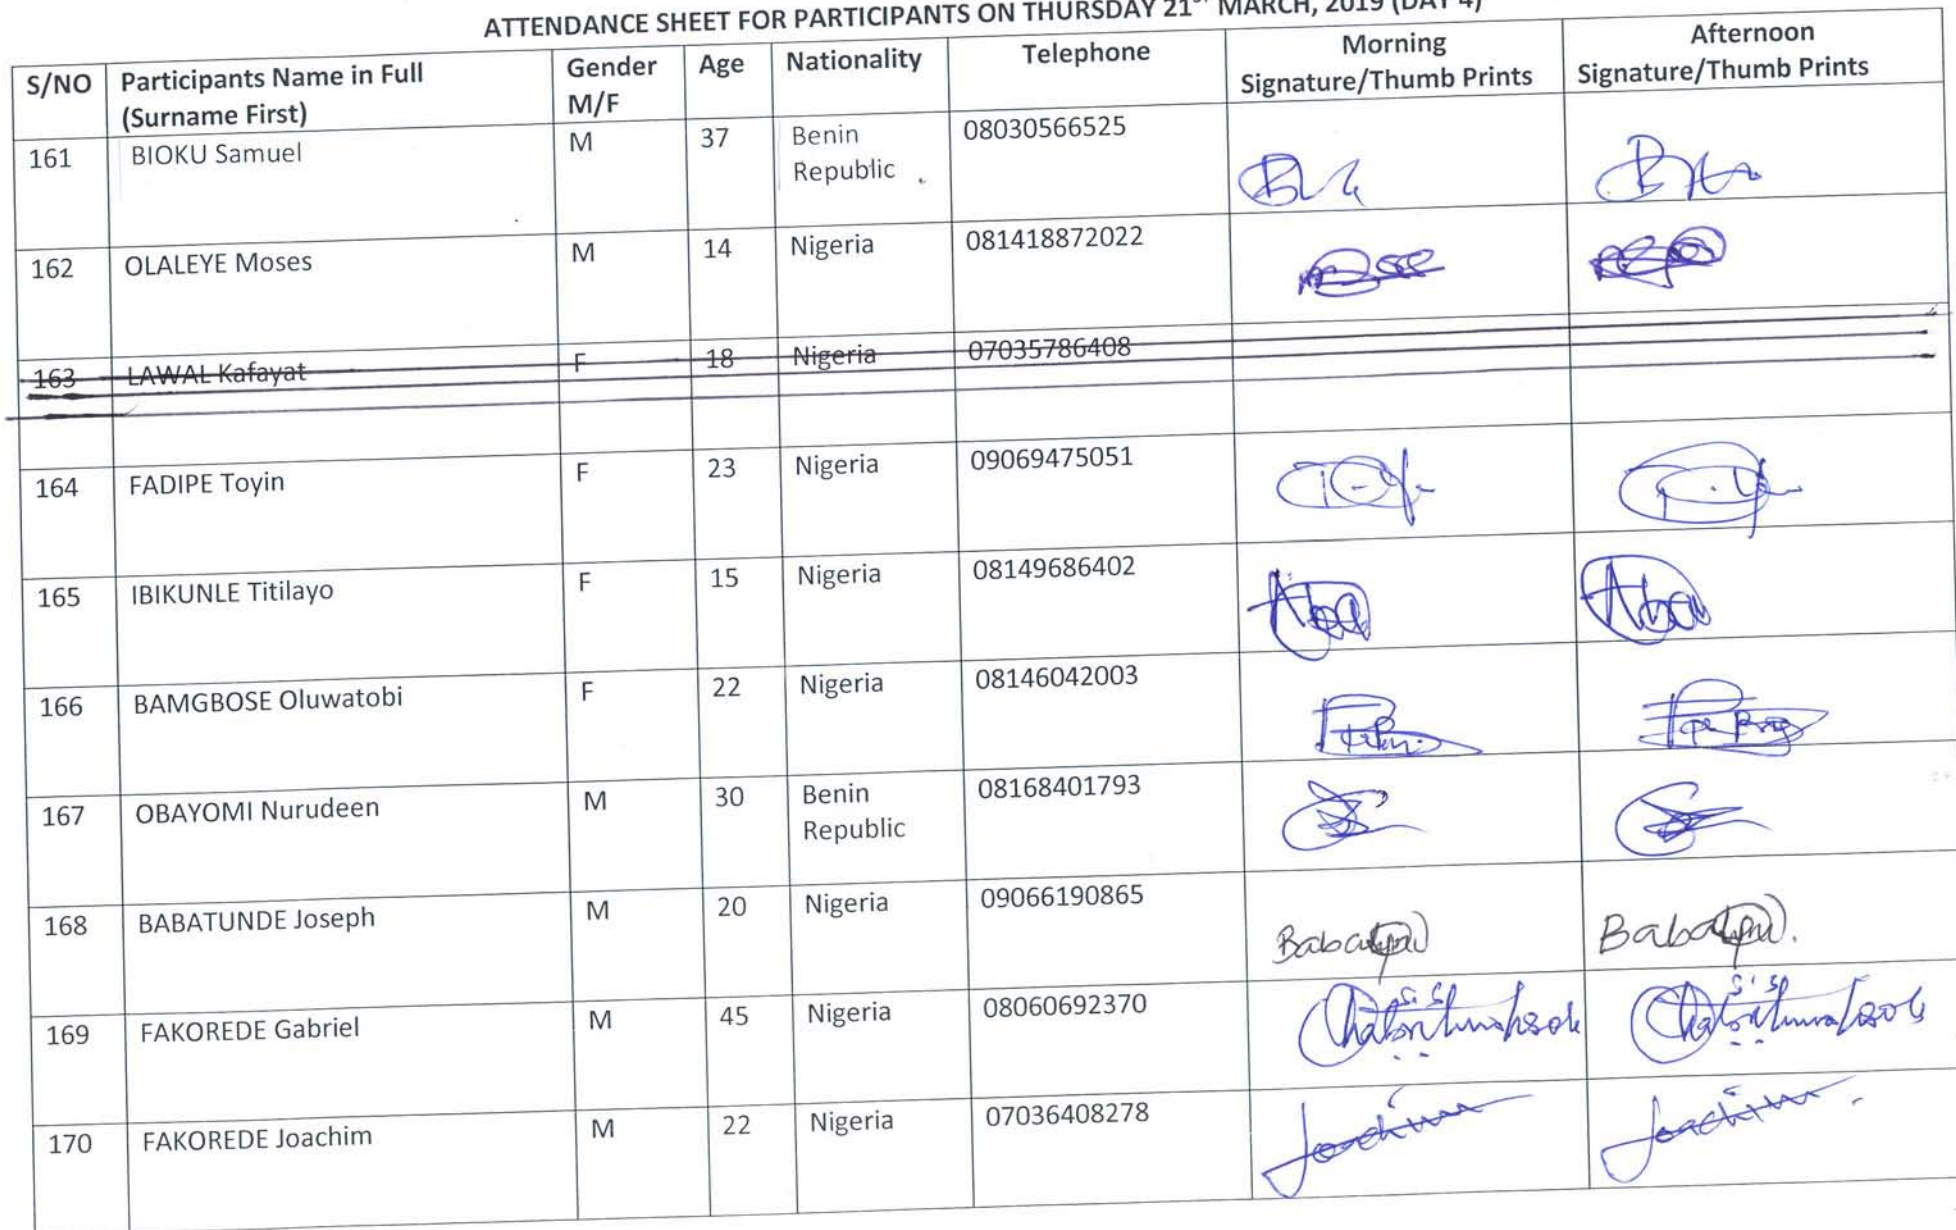 ATTENDANCE SHEET FOR PARTICIPANTS ON THURSDAY 21ST MARCH, 2019 (DAY 4)
S/NO Participants Name in Full (Surname First) Gender M/F Age Nationality Telephone Morning Signature/Thumb Prints Afternoon Signature/Thumb Prints
161 BIOKU Samuel M 37 Benin Republic 08030566525
162 OLALEYE Moses M 14 Nigeria 081418872022
163 LAWAL Kafayat F 18 Nigeria 07035786408
164 FADIPE Toyin F 23 Nigeria 09069475051
165 IBIKUNLE Titilayo F 15 Nigeria 08149686402
166 BAMGBOSE Oluwatobi F 22 Nigeria 08146042003
167 OBAYOMI Nurudeen M 30 Benin Republic 08168401793
168 BABATUNDE Joseph M 20 Nigeria 09066190865
169 FAKOREDE Gabriel M 45 Nigeria 08060692370
170 FAKOREDE Joachim M 22 Nigeria 07036408278 Joachim Joachim